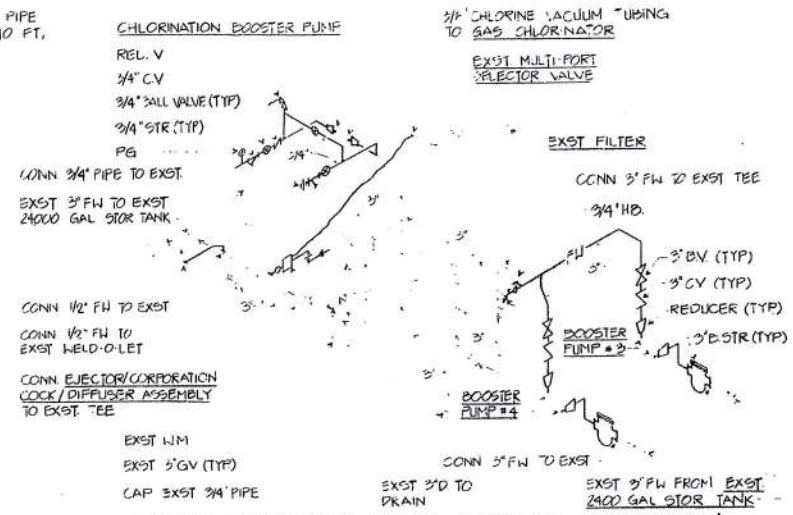 PIPE
10 FT,
CHLORINATION BOOSTER PUMP
REL. V
3/4" C.V
3/4" BALL VALVE (TYP)
3/4" STR (TYP)
PG
CONN 3/4" PIPE TO EXST.
EXST 3" FW TO EXST
24000 GAL STOR TANK
CONN 1/2" FW TO EXST
CONN 1/2" FW TO
EXST WELD-O-LET
CONN. EJECTOR/CORPORATION
COCK/DIFFUSER ASSEMBLY
TO EXST. TEE
EXST WM
EXST 3" GV (TYP)
CAP EXST 3/4" PIPE
3/4"
3"
3"
3"
3"
3"
3"
CHLORINE VACUUM TUBING
TO GAS CHLORINATOR
EXST MULTI-PORT
SELECTOR VALVE
EXST FILTER
CONN 3" FW TO EXST TEE
3/4" HB.
FW
3"
3" B.V. (TYP)
3" CV (TYP)
REDUCER (TYP)
3" B.STR (TYP)
BOOSTER
PUMP #3
BOOSTER
PUMP #4
CONN 3" FW TO EXST
EXST 3" D TO
DRAIN
EXST 3" FW FROM EXST.
2400 GAL STOR TANK